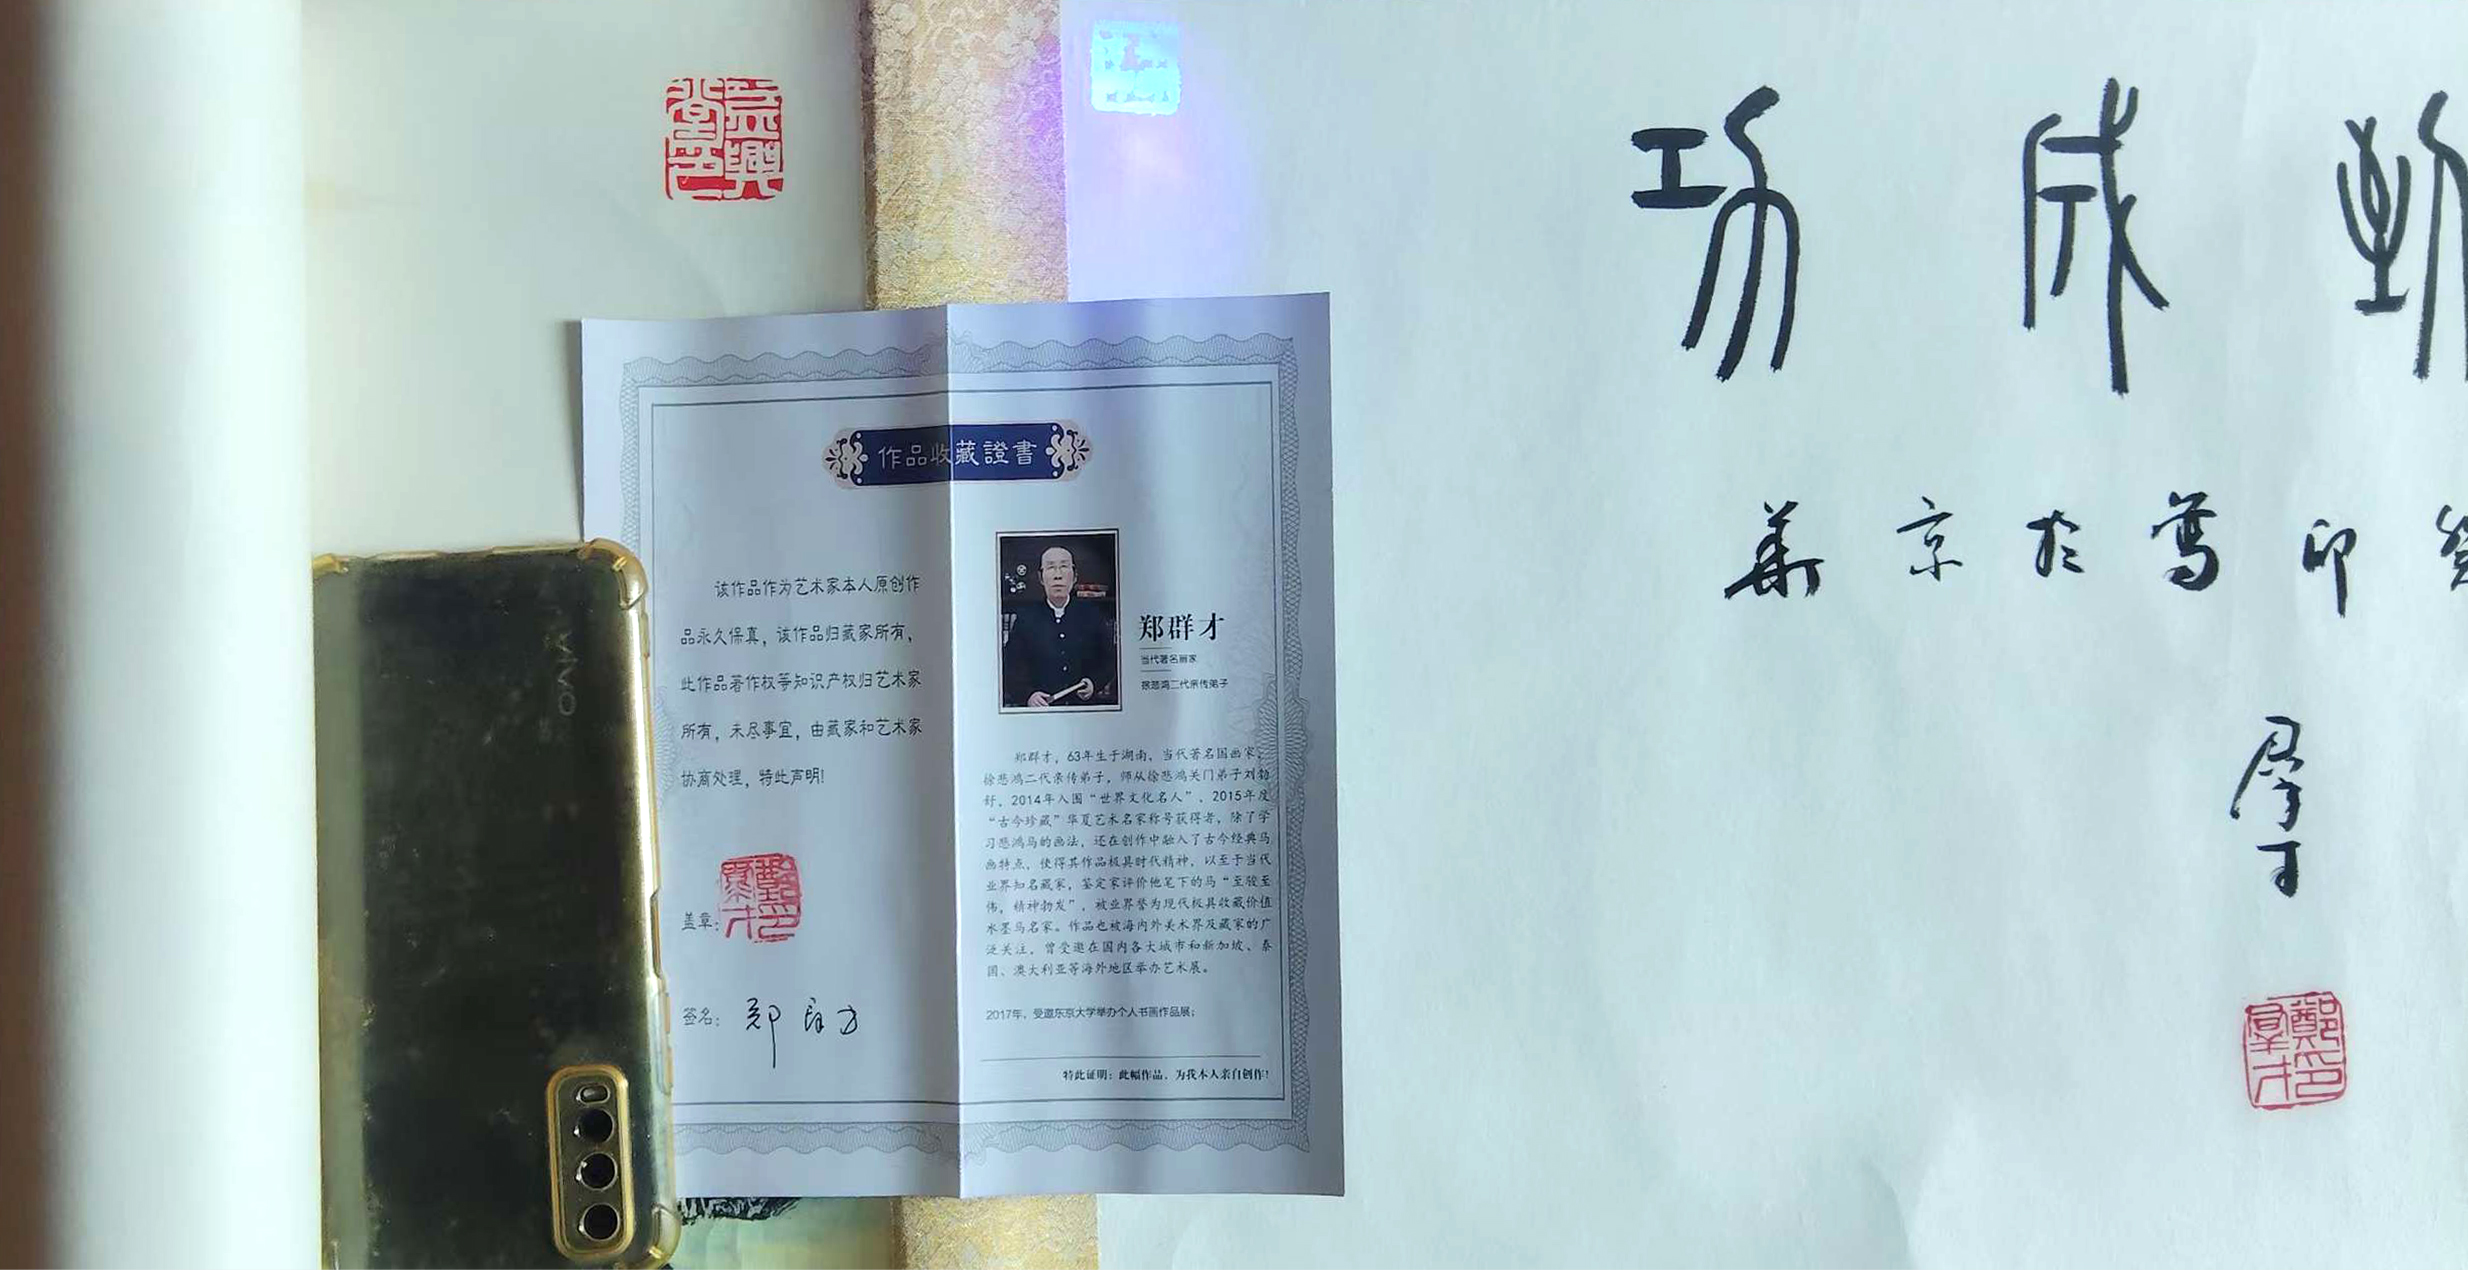 益興
堂印
作品收藏證書
该作品作为艺术家本人原创作
品永久保真，该作品归藏家所有，
此作品著作权等知识产权归艺术家
所有，未尽事宜，由藏家和艺术家
协商处理，特此声明！
盖章：
鄭印
羣才
签名：郑群才
郑群才
当代著名画家
徐悲鸿二代亲传弟子
郑群才，63年生于湖南，当代著名国画家，
徐悲鸿二代亲传弟子，师从徐悲鸿关门弟子刘勃
舒，2014年入围“世界文化名人”，2015年度
“古今珍藏”华夏艺术名家称号获得者，除了学
习悲鸿马的画法，还在创作中融入了古今经典马
画特点，使得其作品极具时代精神，以至于当代
业界知名藏家，鉴定家评价他笔下的马“至骏至
伟，精神勃发”，被业界誉为现代极具收藏价值
水墨马名家。作品也被海内外美术界及藏家的广
泛关注，曾受邀在国内各大城市和新加坡、泰
国、澳大利亚等海外地区举办艺术展。
2017年，受邀东京大学举办个人书画作品展；
特此证明：此幅作品，为我本人亲自创作！
VIVO
功成
华京於写印
群才
鄭印
羣才